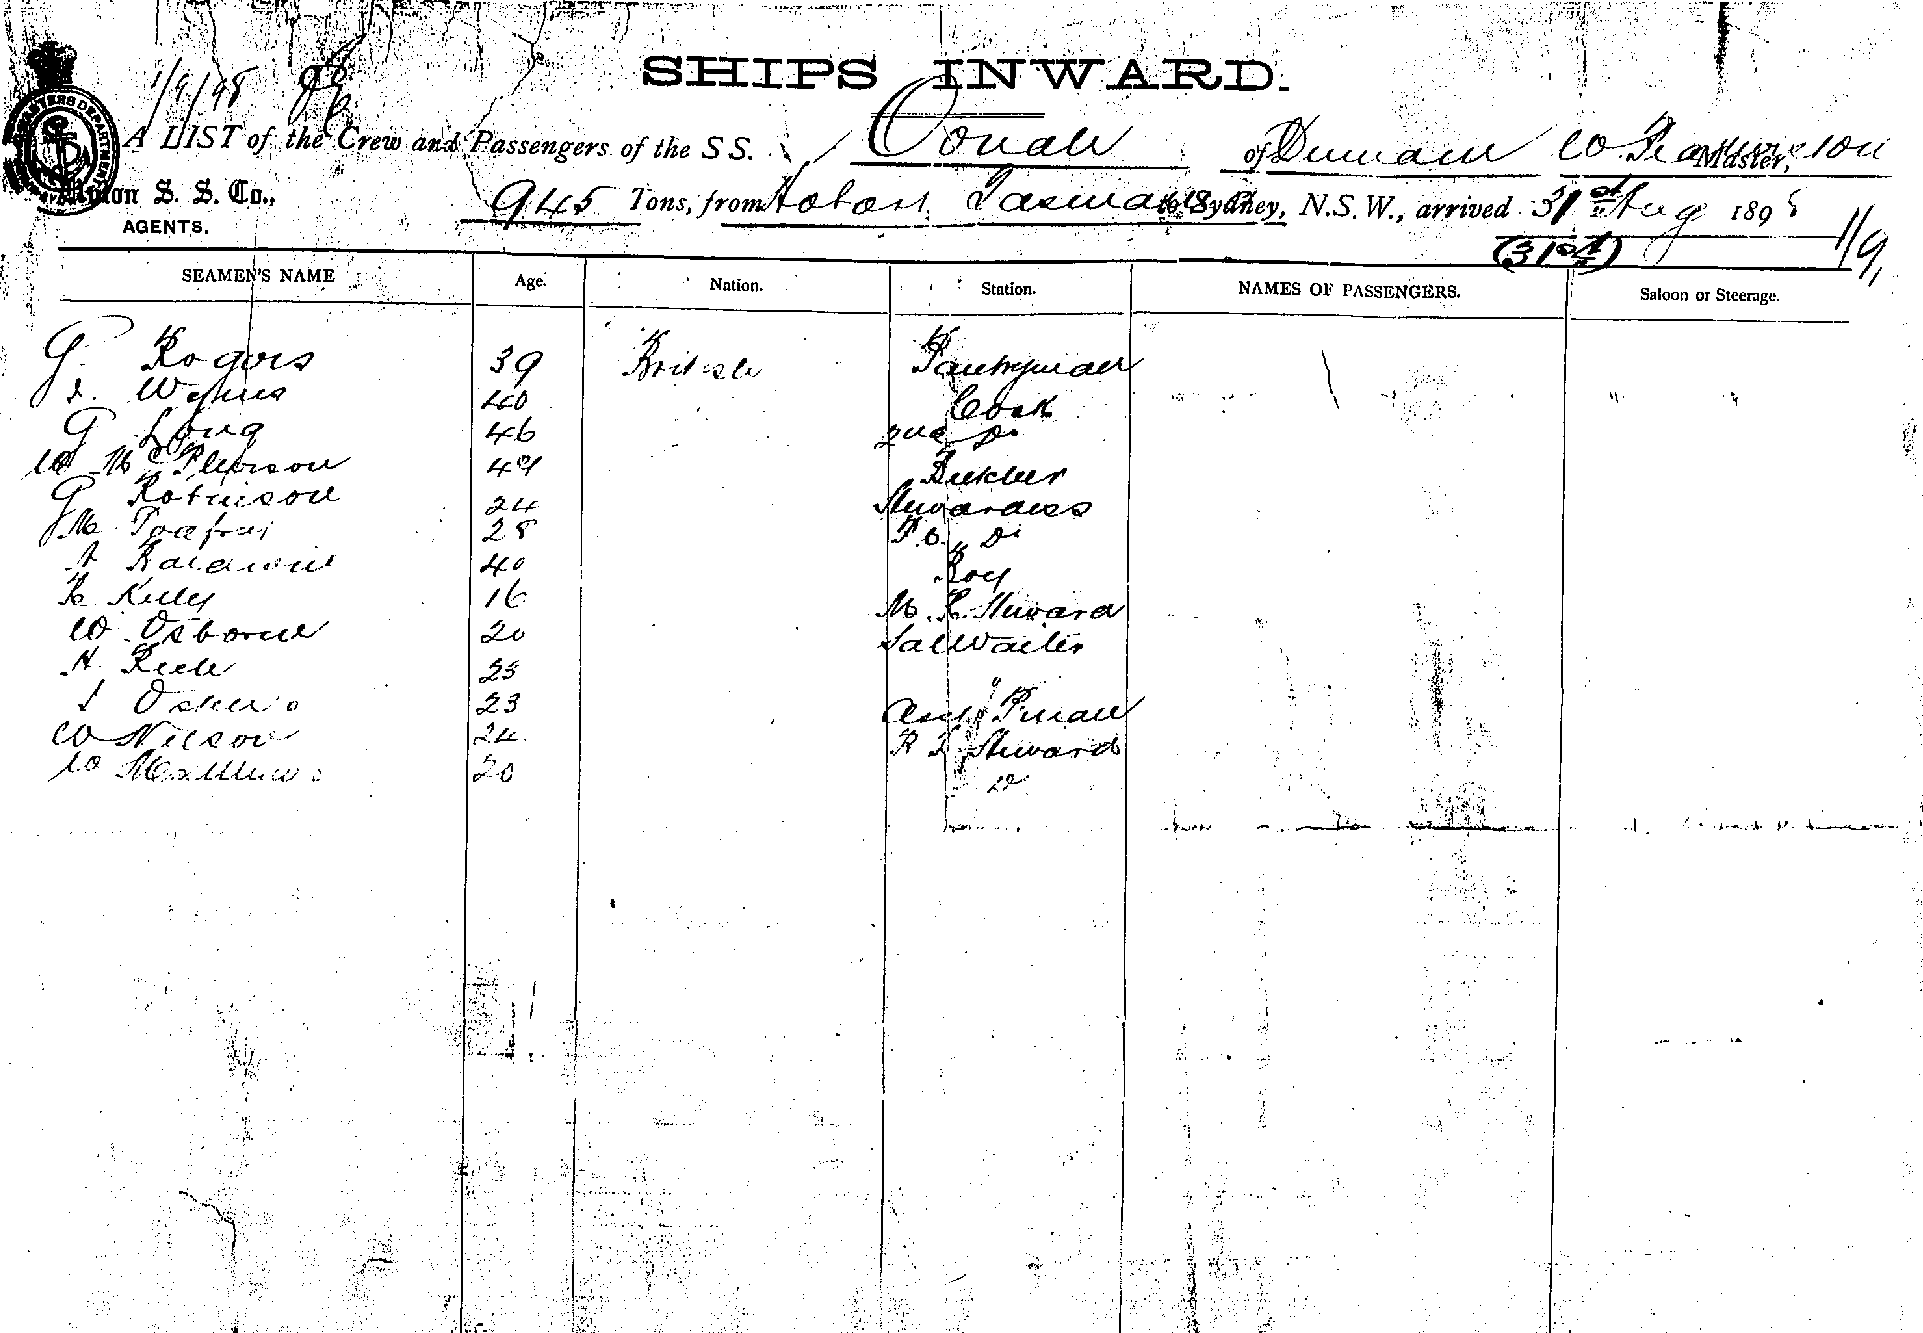 1/9/98
SHIPS INWARD.
A LIST of the Crew and Passengers of the SS. Oonah of Dunedin W. Master,
Union S. S. Co.,
AGENTS.
945 Tons, from Hobart Tasmania to Sydney, N.S.W., arrived 31st Aug 1898
(31st) 1/9
SEAMEN'S NAME Age. Nation. Station. NAMES OF PASSENGERS. Saloon or Steerage.
G. Rogers 39 British Pantryman
40 Cook
G Long 46 2nd Do
W McPherson 49 Butcher
G Robinson 24 Stewardess
M 28 F.C. Do
A Baldwin 40 Boy
R Kelly 16 M. R. Steward
W Osborne 20 Sal Waiter
H 25
23 Asst P.man
W Nelson 24 Steward
W Matthews 20 Do